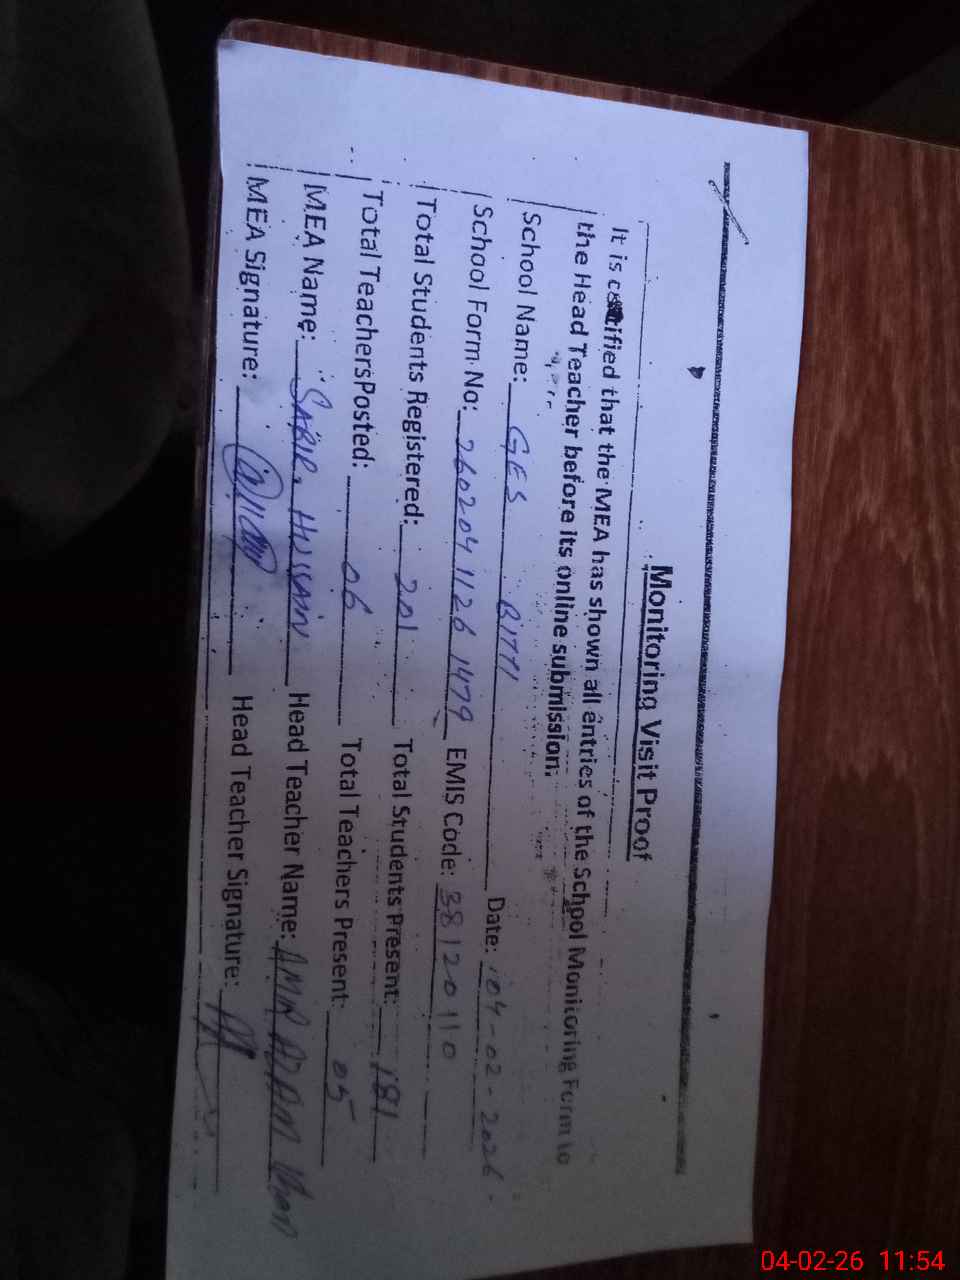 Monitoring Visit Proof
It is certified that the MEA has shown all entries of the School Monitoring Form to
the Head Teacher before its online submission.
School Name: GES BITTI Date: 04-02-2026
School Form No: 26020411261479 EMIS Code: 38120110
Total Students Registered: 201 Total Students Present: 181
Total TeachersPosted: 06 Total Teachers Present: 05
MEA Name: SABIR HUSSAIN Head Teacher Name: Khan
MEA Signature: Head Teacher Signature:
04-02-26 11:54